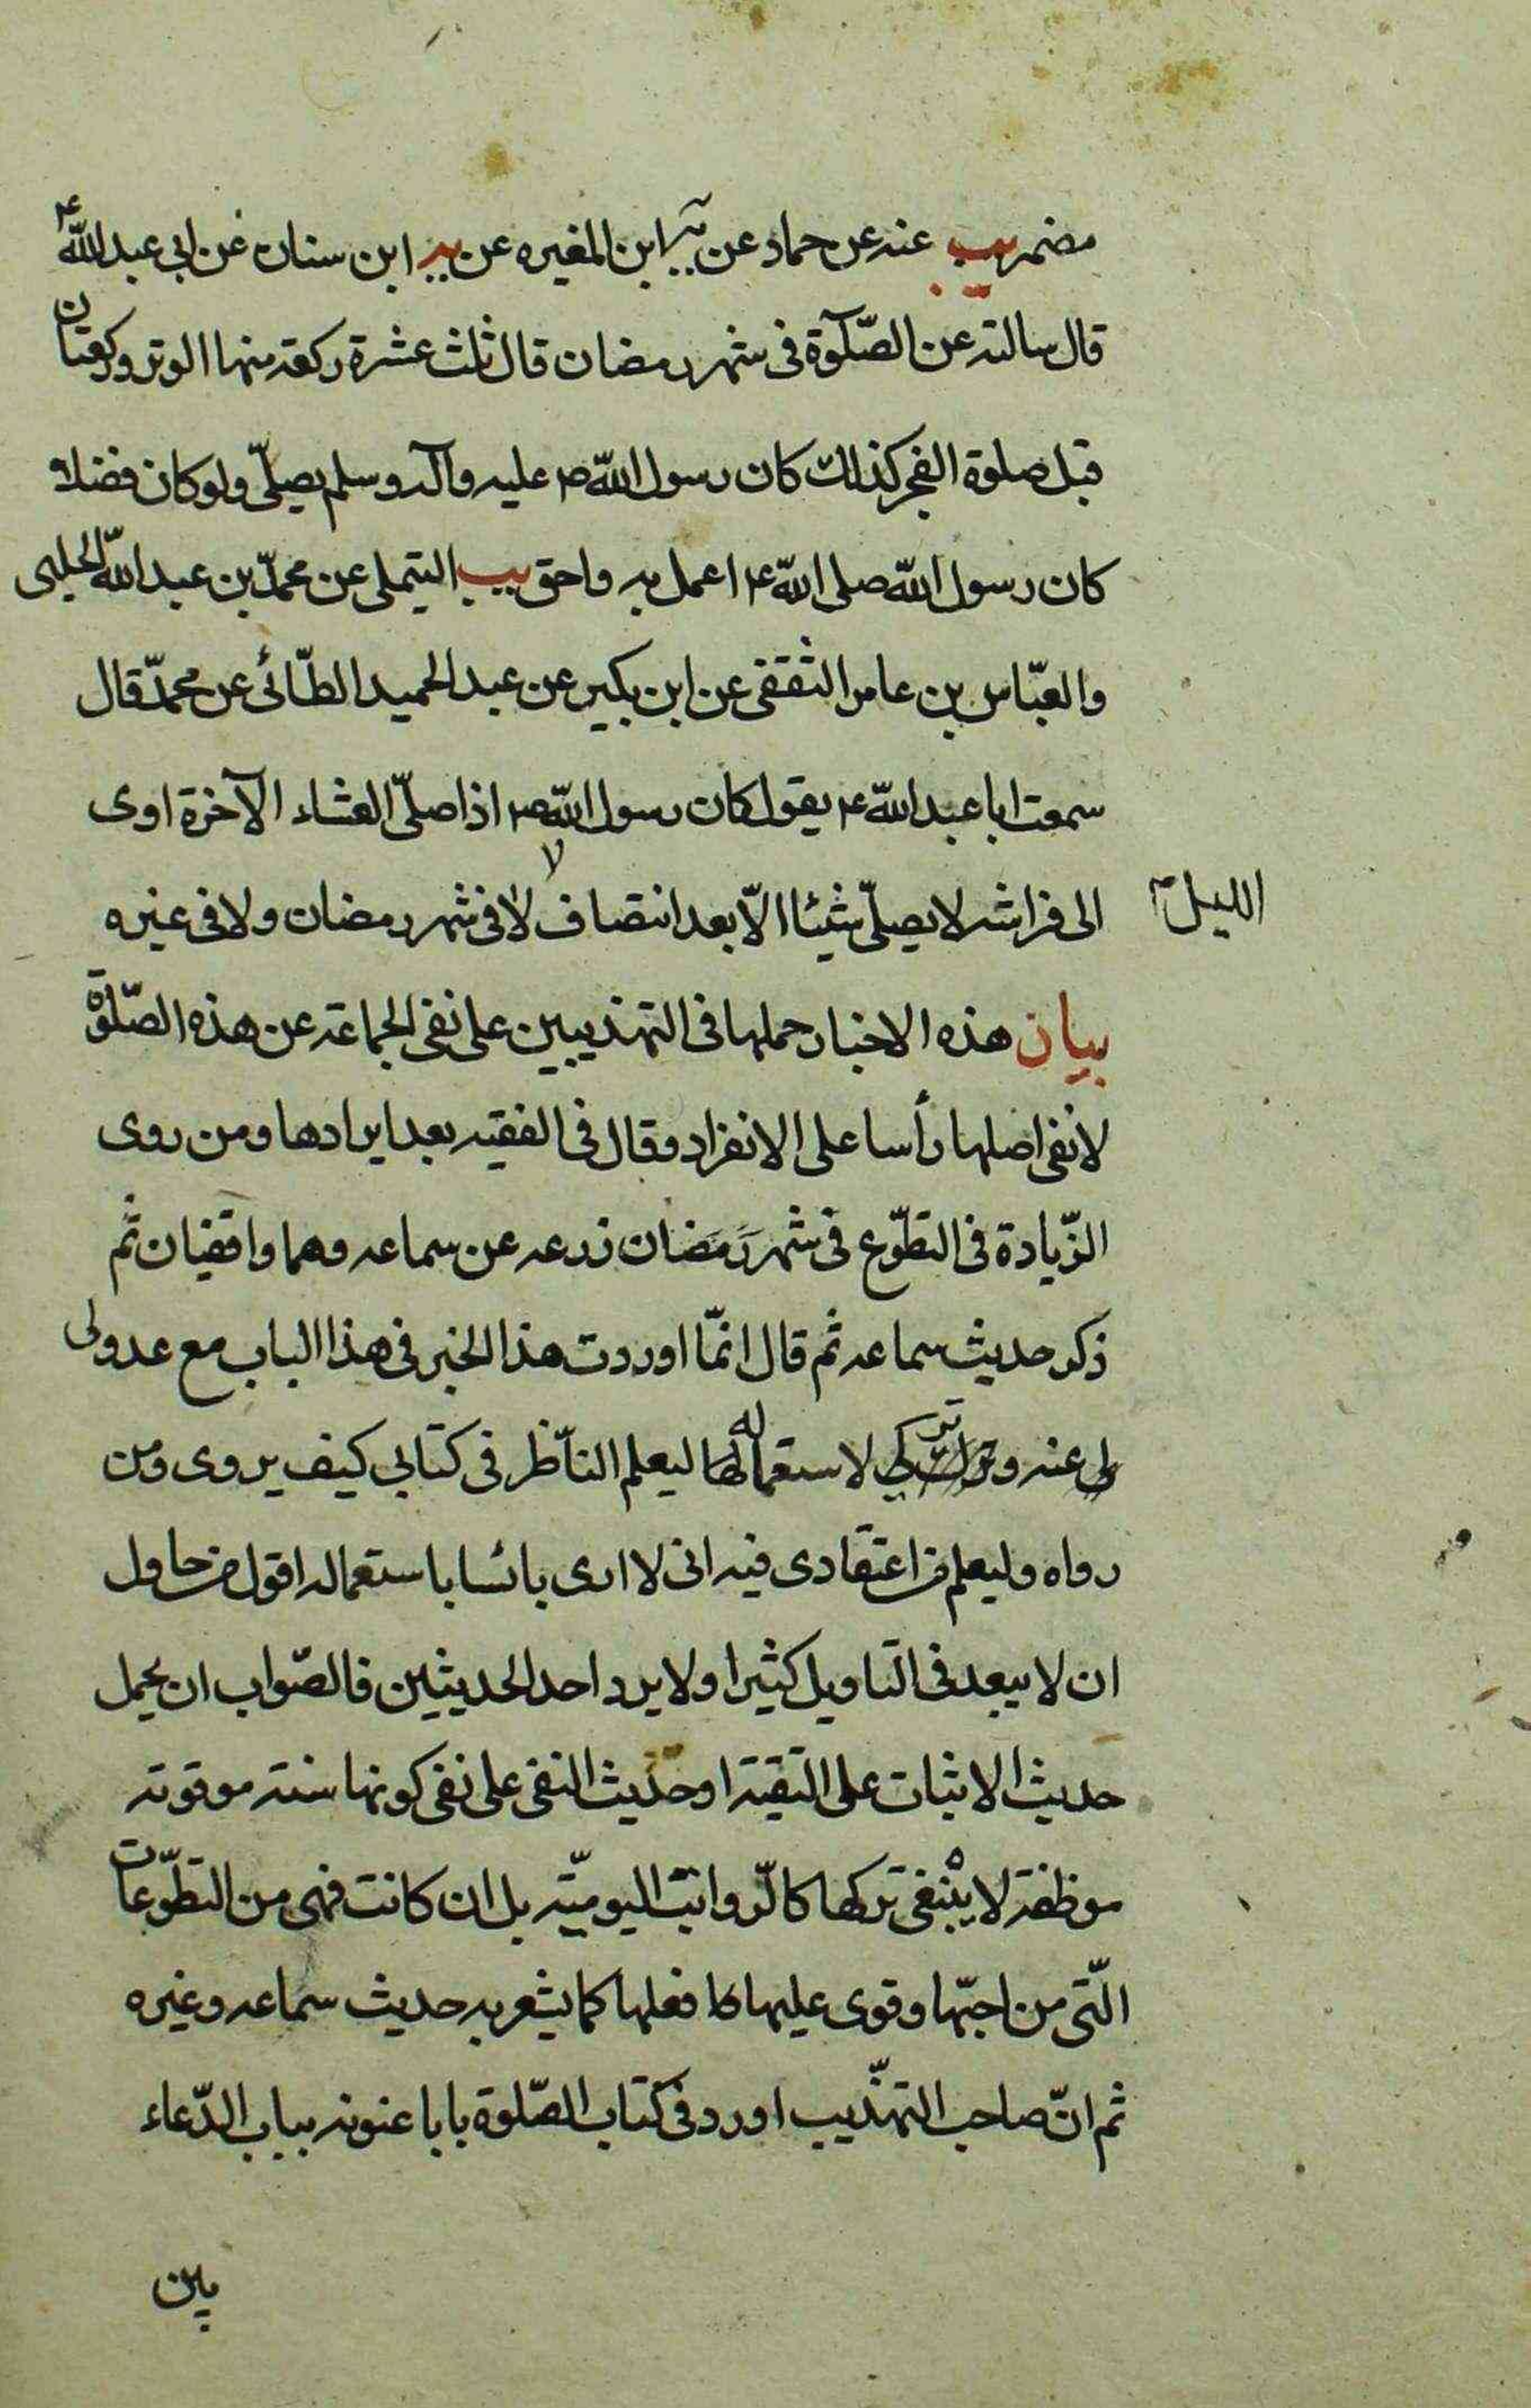 مضمر يب عنه عن حماد عن ابن المغيره عن يه ابن سنان عن ابي عبد الله ع
قال سالته عن الصّلوٓة فى شهر رمضان قال ثلث عشرة ركعة منها الوتر وركعتان
قبل صلوة الفجر كذلك كان رسول اللّه ص عليه وآله وسلم يصلّى ولو كان فضلا
كان رسول اللّه صلى اللّه ع اعمل به واحق يب التيملى عن محمّد بن عبد اللّه الحلبى
والعبّاس بن عامر الثقفى عن ابن بكير عن عبد الحميد الطّائى عن محمّد قال
سمعت ابا عبد اللّه ع يقول كان رسول اللّه ص اذا صلّى العشاء الآخرة اوى
الى فراشه لا يصلّى شيئا الّا بعد انتصاف لا فى شهر رمضان ولا فى غيره
الليل
بيان هذه الاخبار حملها فى التهذيبين على نفى الجماعة عن هذه الصّلوة
لا نفى اصلها رأسا على الانفراد وقال فى الفقيه بعد ايرادها ومن روى
الزّيادة فى التطوّع فى شهر رَمَضان زرعه عن سماعه وهما واقفيان ثم
ذكر حديث سماعه ثم قال انّما اوردت هذا الخبر فى هذا الباب مع عدولى
عنه وتركي لاستعماله ليعلم النّاظر فى كتابي كيف يروى ومن
رواه وليعلم من اعتقادى فيه انى لا ارى بائسا باستعماله اقول من حاول
ان لا يبعد فى التاويل كثيرا ولا يرد احد الحديثين فالصّواب ان يحمل
حديث الاثبات على التقية او حديث النفى على نفى كونها سنته موقوته
موظفة لا ينبغى تركها كالرّواتب اليوميّه بل ان كانت فهى من التطوّعات
الّتى من احبّها وقوى عليها فعلها كما يشعر به حديث سماعه وغيره
ثم انّ صاحب التهذيب اورد فى كتاب الصّلوة بابا عنونه بباب الدّعاء
بين